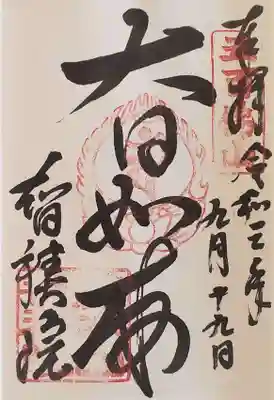 奉拝
令和三年
九月十九日
大日如来
智積院